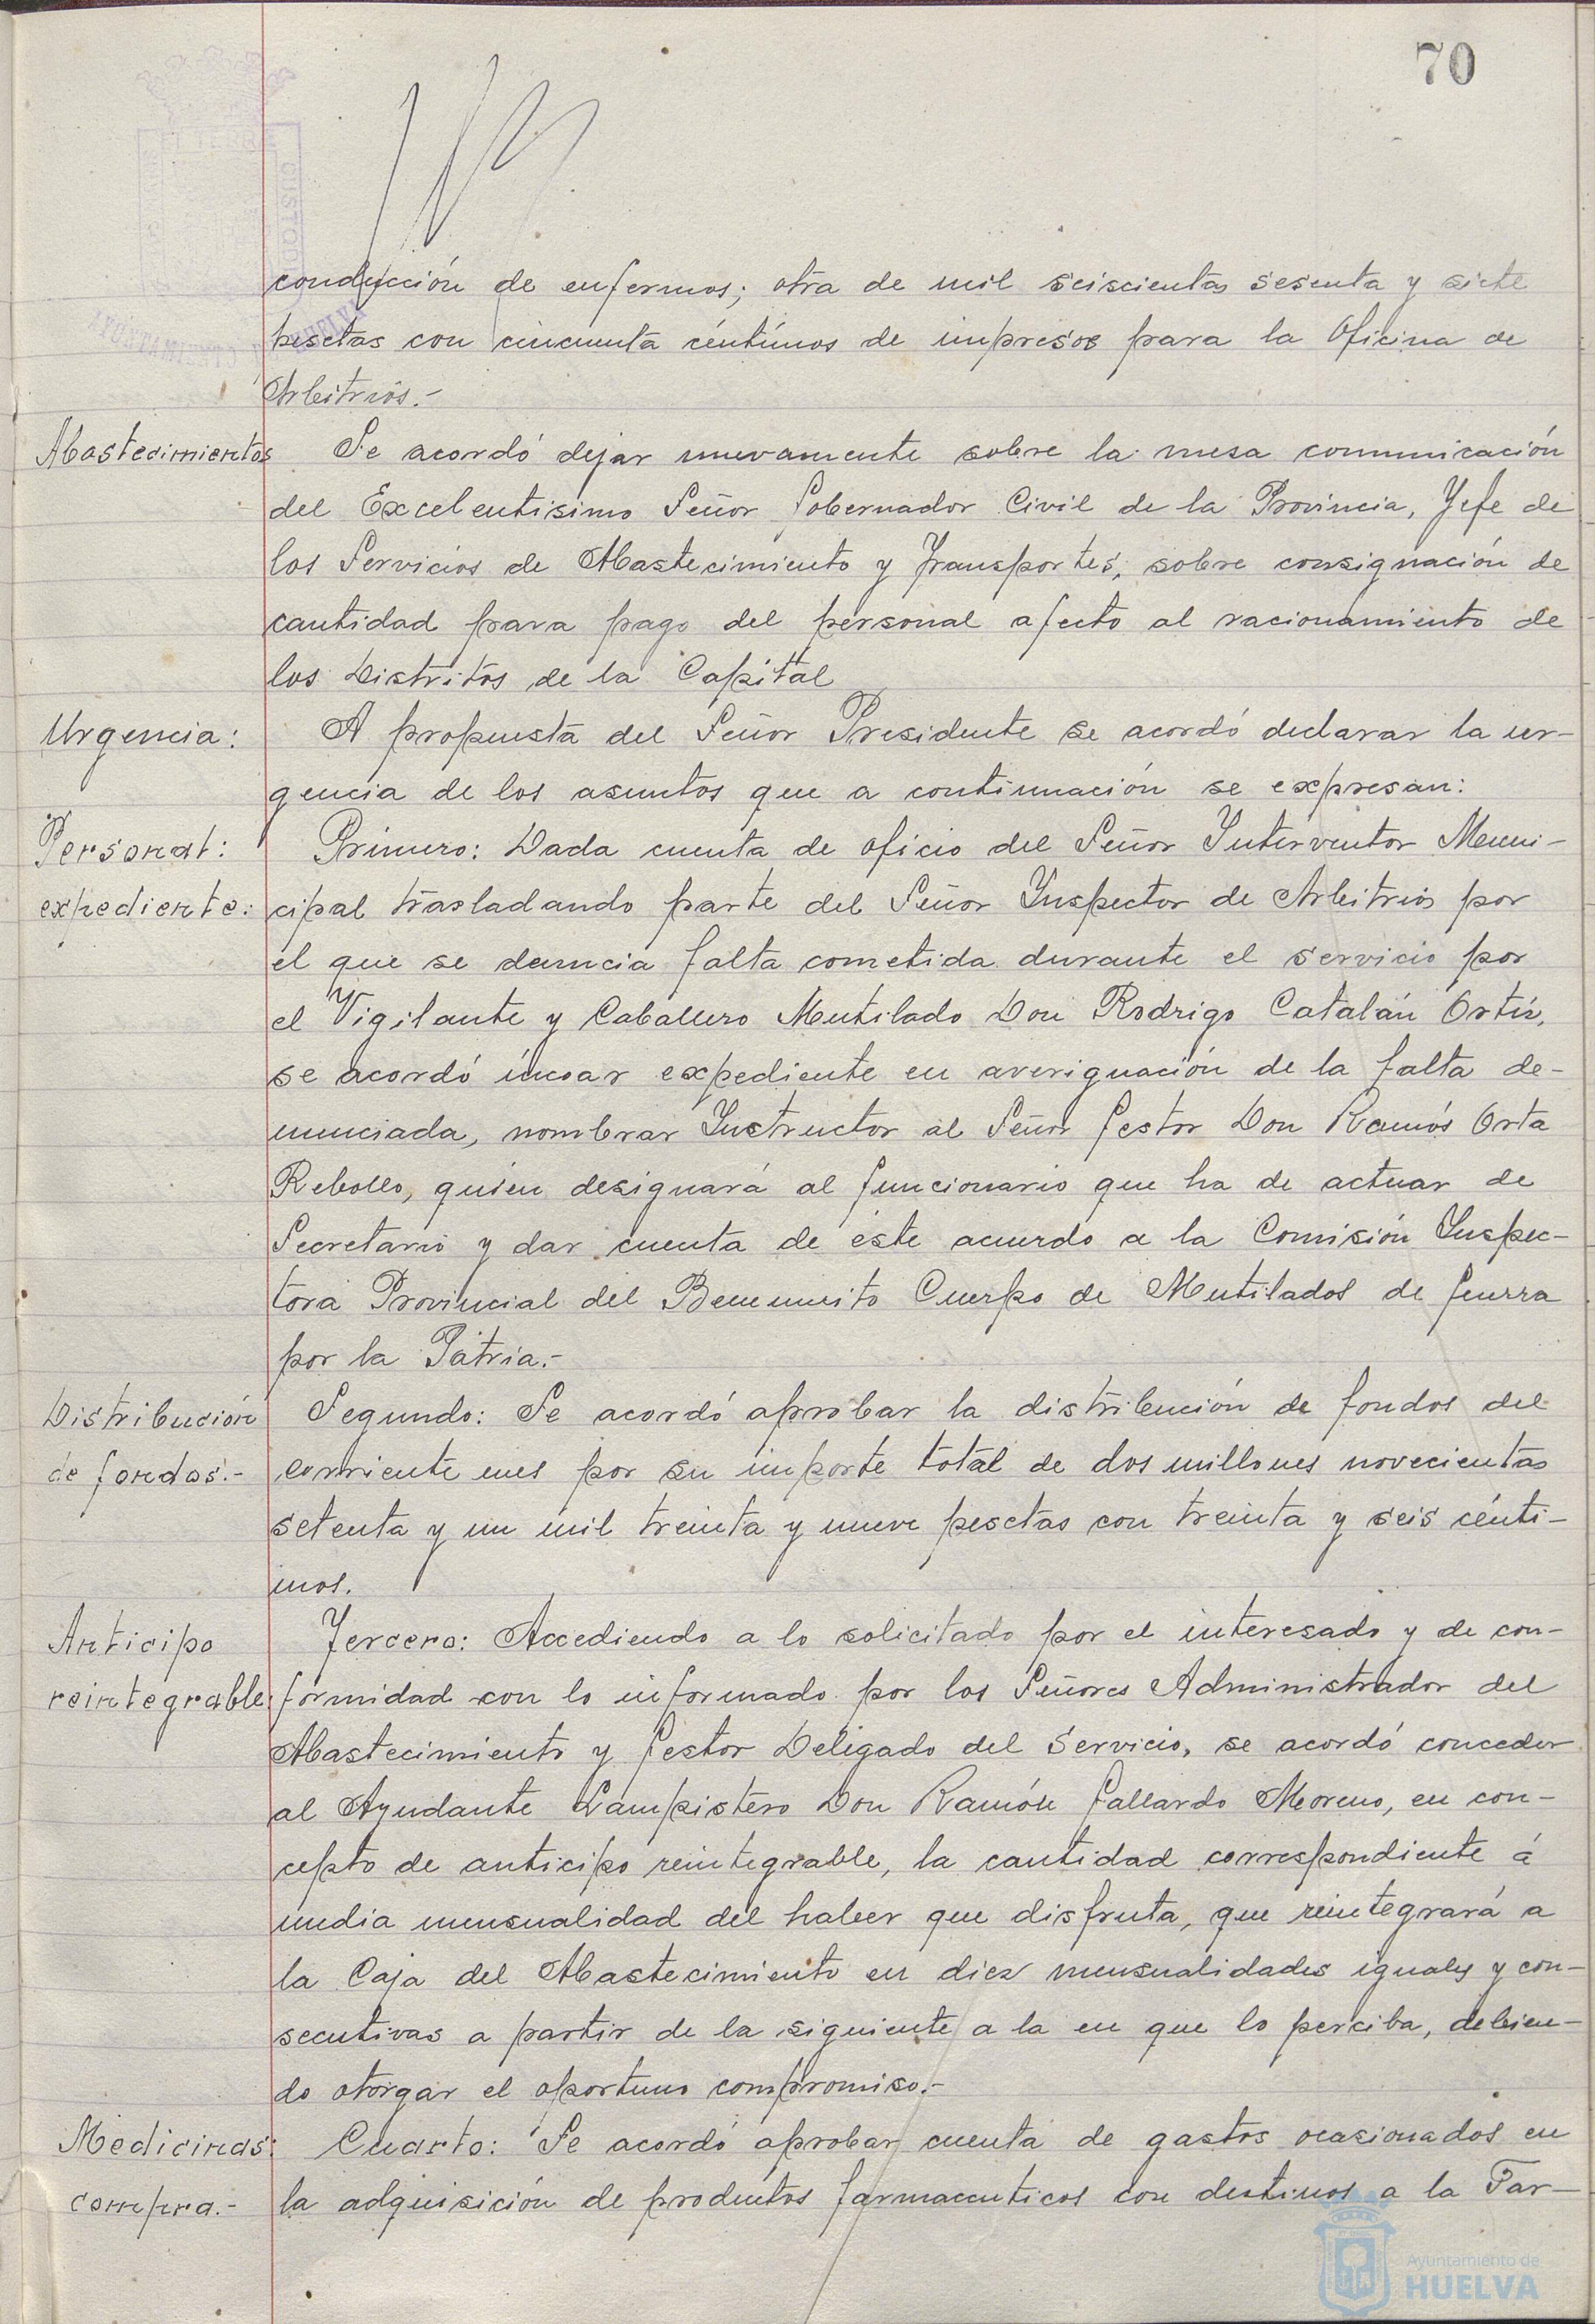 70
conducción de enfermos; otra de mil seiscientas sesenta y siete
pesetas con cincuenta céntimos de impresos para la Oficina de
Arbitrios.-
Abastecimientos
Se acordó dejar nuevamente sobre la mesa comunicación
del Excelentisimo Señor Gobernador Civil de la Provincia, Jefe de
los Servicios de Abastecimiento y Transportes, sobre consignación de
cantidad para pago del personal afecto al racionamiento de
los Distritos de la Capital
Urgencia:
A propuesta del Señor Presidente se acordó declarar la ur-
gencia de los asuntos que a continuación se expresan:
Personal:
expediente:
Primero: Dada cuenta de oficio del Señor Interventor Muni-
cipal trasladando parte del Señor Inspector de Arbitrios por
el que se denuncia falta cometida durante el servicio por
el Vigilante y Caballero Mutilado Don Rodrigo Catalán Ortiz,
se acordó incoar expediente en averiguación de la falta de-
nunciada, nombrar Instructor al Señor Gestor Don Ramós Orta
Rebollo, quien designará al funcionario que ha de actuar de
Secretario y dar cuenta de éste acuerdo a la Comisión Inspec-
tora Provincial del Benemérito Cuerpo de Mutilados de Guerra
por la Pátria.-
Distribución
de fondos.-
Segundo: Se acordó aprobar la distribución de fondos del
corriente mes por su importe total de dos millones novecientas
setenta y un mil treinta y nueve pesetas con treinta y seis cénti-
mos.
Anticipo
reintegrable:
Tercero: Accediendo a lo solicitado por el interesado y de con-
formidad con lo informado por los Señores Administrador del
Abastecimiento y Gestor Delegado del Servicio, se acordó conceder
al Ayudante Lampistero Don Ramón Gallardo Moreno, en con-
cepto de anticipo reintegrable, la cantidad correspondiente á
media mensualidad del haber que disfruta, que reintegrará a
la Caja del Abastecimiento en diez mensualidades iguales y con-
secutivas a partir de la siguiente a la en que lo perciba, debien-
do otorgar el oportuno compromiso.-
Medicinas:
compra.-
Cuarto: Se acordó aprobar cuenta de gastos ocasionados en
la adquisición de productos farmaceuticos con destinos a la Far-
Ayuntamiento de
HUELVA